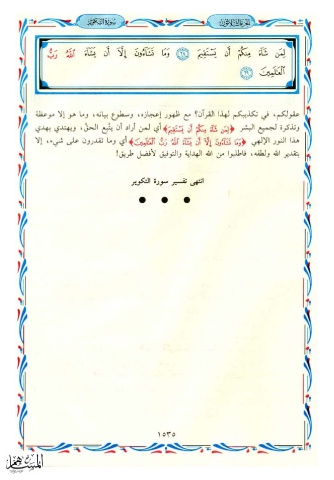 الجزء الثلاثون
سورة التكوير
لِمَن شَآءَ مِنكُمْ أَن يَسْتَقِيمَ ﴿٢٨﴾ وَمَا تَشَآءُونَ إِلَّآ أَن يَشَآءَ ٱللَّهُ رَبُّ
ٱلْعَٰلَمِينَ ﴿٢٩﴾
عقولكم، في تكذيبكم لهذا القرآن؟ مع ظهور إعجازه، وسطوع بيانه، وما هو إلا موعظة
وتذكرة لجميع البشر ﴿لِمَن شَآءَ مِنكُمْ أَن يَسْتَقِيمَ﴾ أي لمن أراد أن يتّبع الحقّ، ويهتدي بهدي
هذا النور الإلهي ﴿وَمَا تَشَآءُونَ إِلَّآ أَن يَشَآءَ ٱللَّهُ رَبُّ ٱلْعَٰلَمِينَ﴾ أي وما تقدرون على شيء، إلا
بتقدير الله ولطفه، فاطلبوا من الله الهداية والتوفيق لأفضل طريق!
انتهى تفسير سورة التكوير
١٥٣٥